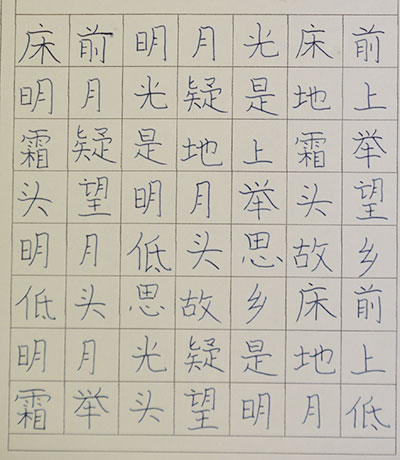 床前明月光床前
明月光疑是地上
霜疑是地上霜举
头望明月举头望
明月低头思故乡
低头思故乡床前
明月光疑是地上
霜举头望明月低